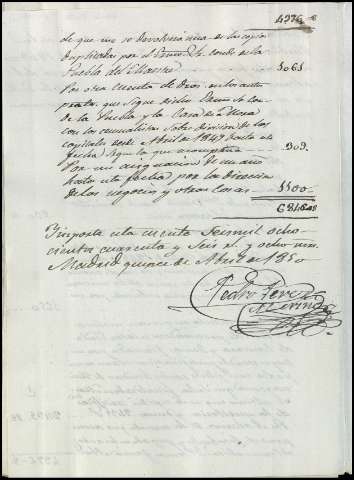 4376 8
de que no se devolviesen de la copia
duplicadas por el Excmo. Sr. Conde de la
Puebla del Maestre 1061
Por otra cuenta de dros. en los autos
que sigue dicho Excmo. Sr. Con-
de de la Puebla y la Casa de
con los censualistas sobre division de los
capitales desde Abril de 1849 hasta esta
fecha segun la que acompaña 909.
Por mi asignacion de un año
hasta esta fecha por la direccion
de los negocios y otras cosas 1100
6846 8
Importa esta cuenta seis mil ocho-
cientos cuarenta y seis r. y ocho mrs.
Madrid quince de Abril de 1850
Pedro Perez
Merino